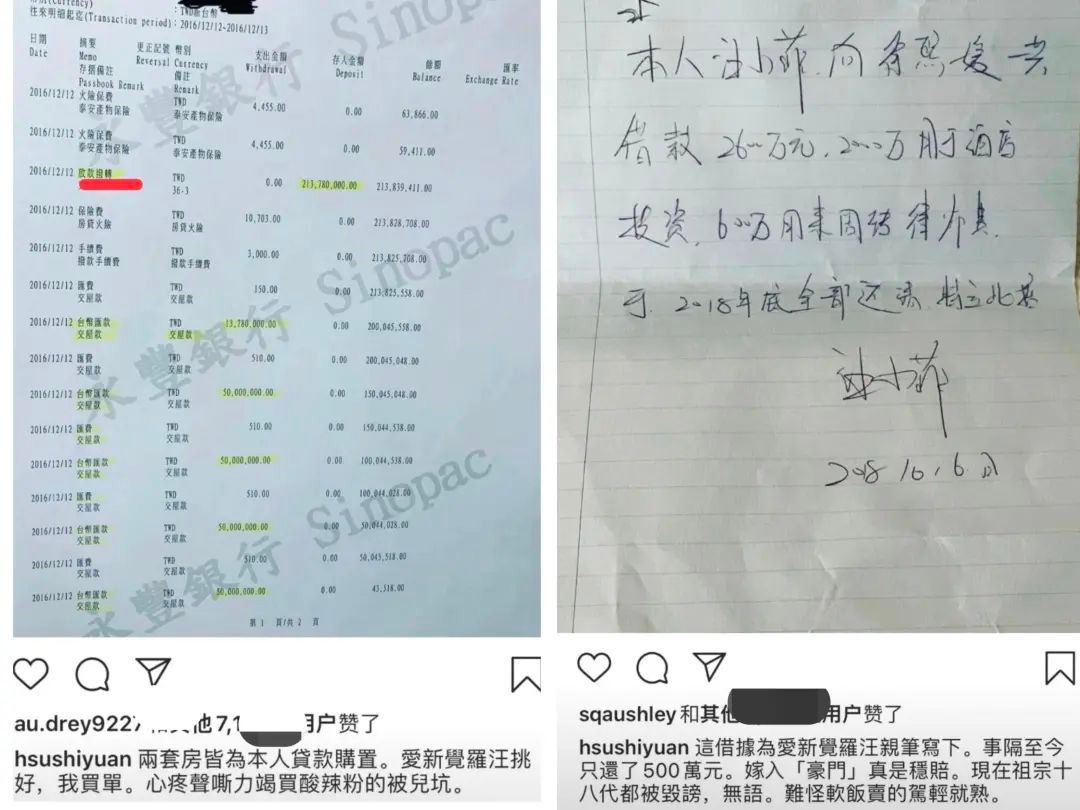 往來明細起迄(Transaction period): 2016/12/12~2016/12/13
日期 摘要 更正記號 幣別 支出金額 存入金額 餘額 匯率
Date Memo Reversal Currency Withdrawal Deposit Balance Exchange Rate
存摺備註 備註
Passbook Remark Remark
2016/12/12 火險保費 TWD 4,455.00 0.00 63,866.00
泰安產物保險 泰安產物保險
2016/12/12 火險保費 TWD 4,455.00 0.00 59,411.00
泰安產物保險 泰安產物保險
2016/12/12 放款撥轉 TWD 0.00 213,780,000.00 213,839,411.00
36-3
2016/12/12 保險費 TWD 10,703.00 0.00 213,828,708.00
房貸火險 房貸火險
2016/12/12 手續費 TWD 3,000.00 0.00 213,825,708.00
撥款手續費 撥款手續費
2016/12/12 匯費 TWD 150.00 0.00 213,825,558.00
交屋款 交屋款
2016/12/12 台幣匯款 TWD 13,780,000.00 0.00 200,045,558.00
交屋款 交屋款
2016/12/12 匯費 TWD 510.00 0.00 200,045,048.00
交屋款 交屋款
2016/12/12 台幣匯款 TWD 50,000,000.00 0.00 150,045,048.00
交屋款 交屋款
2016/12/12 匯費 TWD 510.00 0.00 150,044,538.00
交屋款 交屋款
2016/12/12 台幣匯款 TWD 50,000,000.00 0.00 100,044,538.00
交屋款 交屋款
2016/12/12 匯費 TWD 510.00 0.00 100,044,028.00
交屋款 交屋款
2016/12/12 台幣匯款 TWD 50,000,000.00 0.00 50,044,028.00
交屋款 交屋款
2016/12/12 匯費 TWD 510.00 0.00 50,043,518.00
交屋款 交屋款
2016/12/12 台幣匯款 TWD 50,000,000.00 0.00 43,518.00
交屋款 交屋款
第 1 頁/共 2 頁
永豐銀行 Sinopac
永豐銀行 Sinopac
永豐銀行 Sinopac
au.drey922 其他7,1 用户赞了
hsushiyuan 兩套房皆為本人貸款購置。愛新覺羅汪挑
好，我買單。心疼聲嘶力竭買酸辣粉的被兒坑。
本人汪小菲,向徐熙媛共
借款2600万元,2000万用于酒店
投资,600万用来周转
于,2018年底全部还清,特立此
汪小菲
2018,6.
sqaushley和其他 用户赞了
hsushiyuan 這借據為愛新覺羅汪親筆寫下。事隔至今
只還了500萬元。嫁入「豪門」真是穩賠。現在祖宗十
八代都被毀謗，無語。難怪軟飯賣的駕輕就熟。